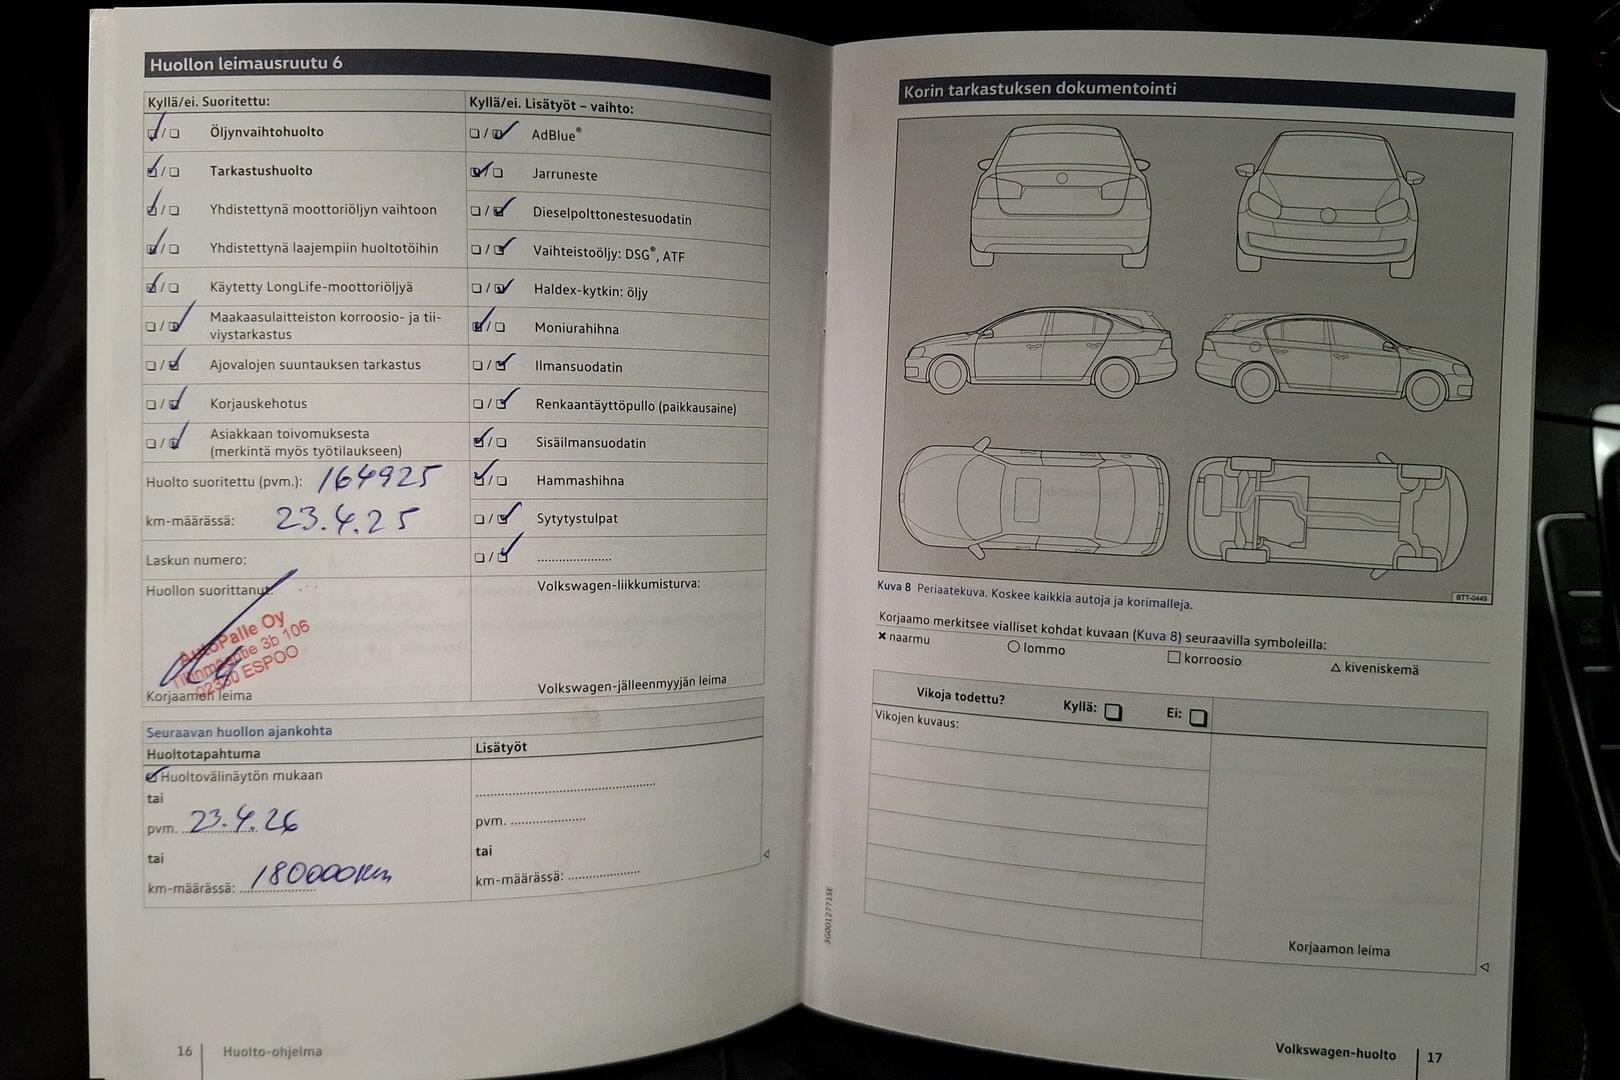 Huollon leimausruutu 6
Kyllä/ei. Suoritettu:
Öljynvaihtohuolto
Tarkastushuolto
Yhdistettynä moottoriöljyn vaihtoon
Yhdistettynä laajempiin huoltotöihin
Käytetty LongLife-moottoriöljyä
Maakaasulaitteiston korroosio- ja tii-
viystarkastus
Ajovalojen suuntauksen tarkastus
Korjauskehotus
Asiakkaan toivomuksesta
(merkintä myös työtilaukseen)
Huolto suoritettu (pvm.): 164925
km-määrässä: 23.4.25
Laskun numero:
Huollon suorittanut:
AutoPalle Oy
3b 106
02330 ESPOO
Korjaamon leima
Kyllä/ei. Lisätyöt – vaihto:
AdBlue®
Jarruneste
Dieselpolttonestesuodatin
Vaihteistoöljy: DSG®, ATF
Haldex-kytkin: öljy
Moniurahihna
Ilmansuodatin
Renkaantäyttöpullo (paikkausaine)
Sisäilmansuodatin
Hammashihna
Sytytystulpat
Volkswagen-liikkumisturva:
Volkswagen-jälleenmyyjän leima
Seuraavan huollon ajankohta
Huoltotapahtuma
Huoltovälinäytön mukaan
tai
pvm. 23.4.26
tai
km-määrässä: 180000km
Lisätyöt
pvm.
tai
km-määrässä:
16 Huolto-ohjelma
3G0012771SE
Korin tarkastuksen dokumentointi
BTT-0449
Kuva 8 Periaatekuva. Koskee kaikkia autoja ja korimalleja.
Korjaamo merkitsee vialliset kohdat kuvaan (Kuva 8) seuraavilla symboleilla:
× naarmu ○ lommo □ korroosio △ kiveniskemä
Vikoja todettu? Kyllä: Ei:
Vikojen kuvaus:
Korjaamon leima
Volkswagen-huolto 17